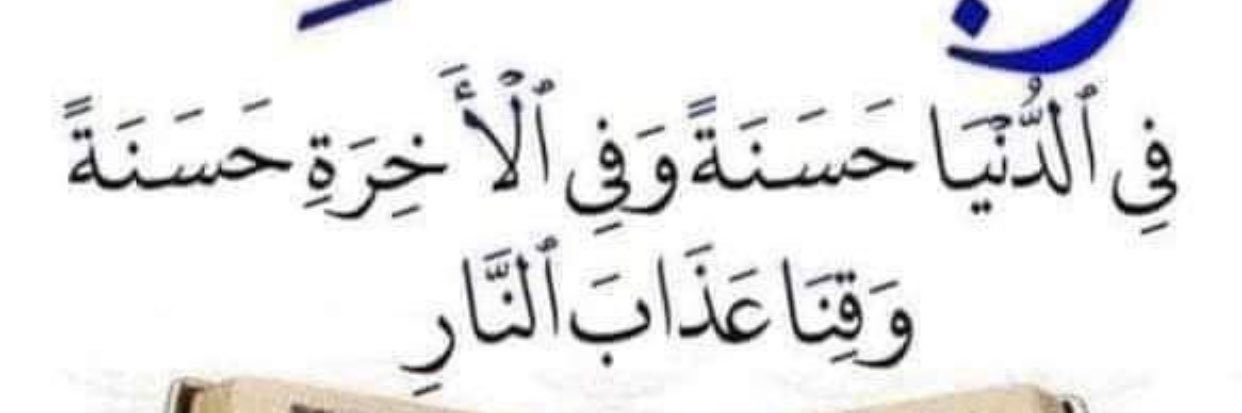 فِي ٱلدُّنْيَا حَسَنَةً وَفِي ٱلْأَخِرَةِ حَسَنَةً
وَقِنَا عَذَابَ ٱلنَّارِ